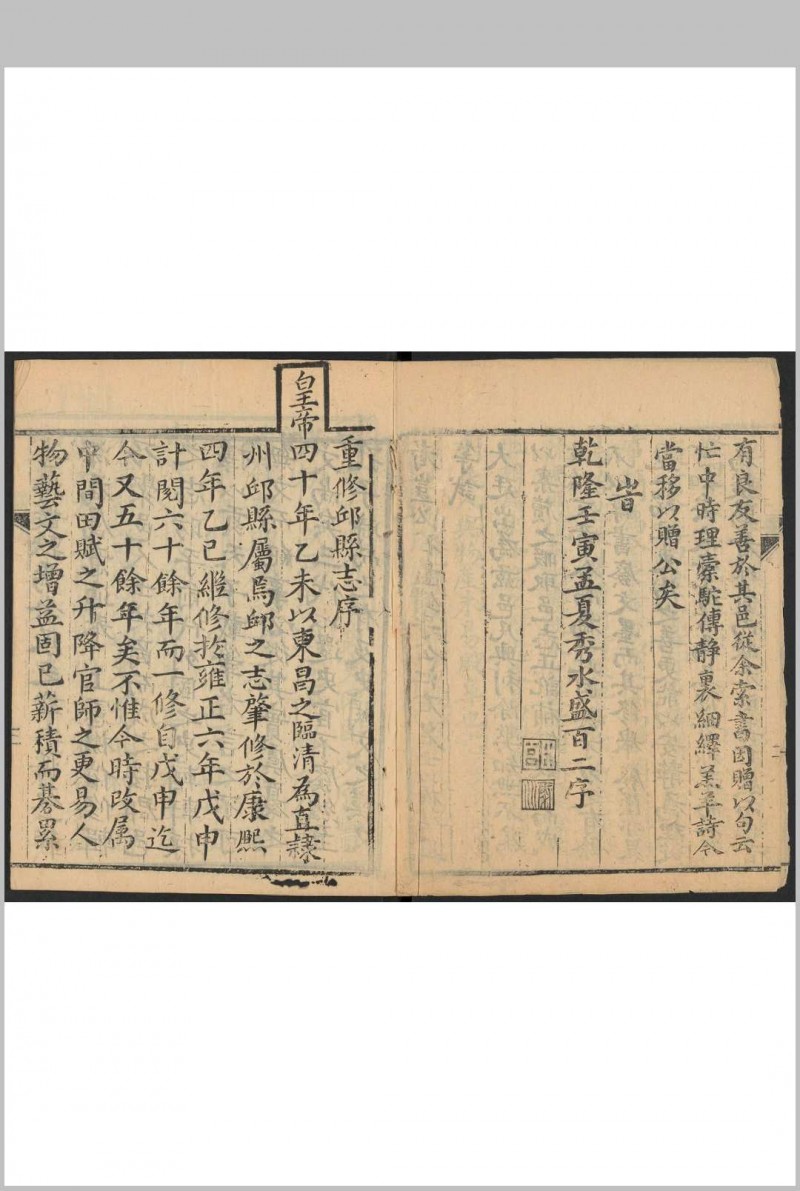 有良友善於其邑從余索書因贈以句云
忙中時理橐駝傳靜裏紬繹羔羊詩今
當移以贈公矣
旹
乾隆壬寅孟夏秀水盛百二字
重修邱縣志序
皇帝四十年乙未以東昌之臨清為直隸
州邱縣屬焉邱之志肇修於康熙
四年乙巳繼修於雍正六年戊申
計閱六十餘年而一修自戊申迄
今又五十餘年矣不惟今時改属
中間田賦之升降官師之更易人
物藝文之增益固已薪積而棊累